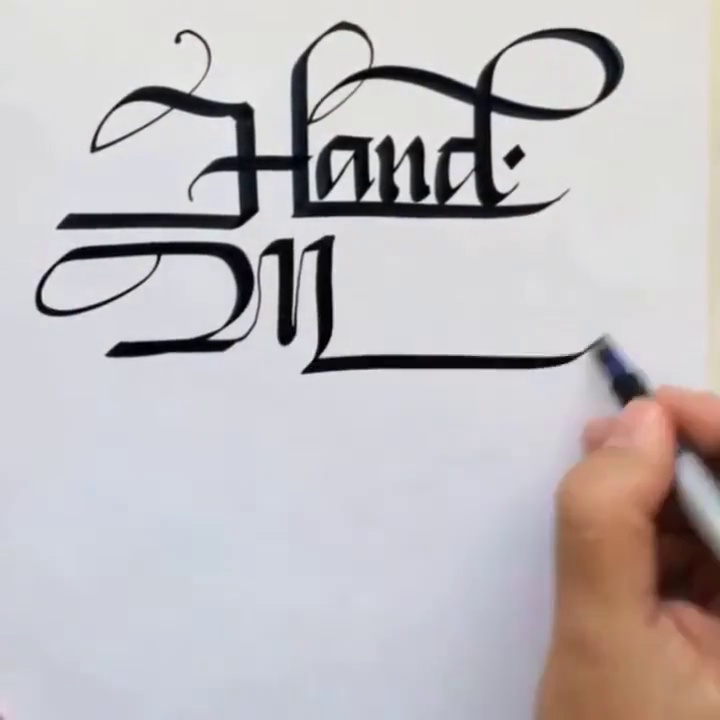 Hand.
M